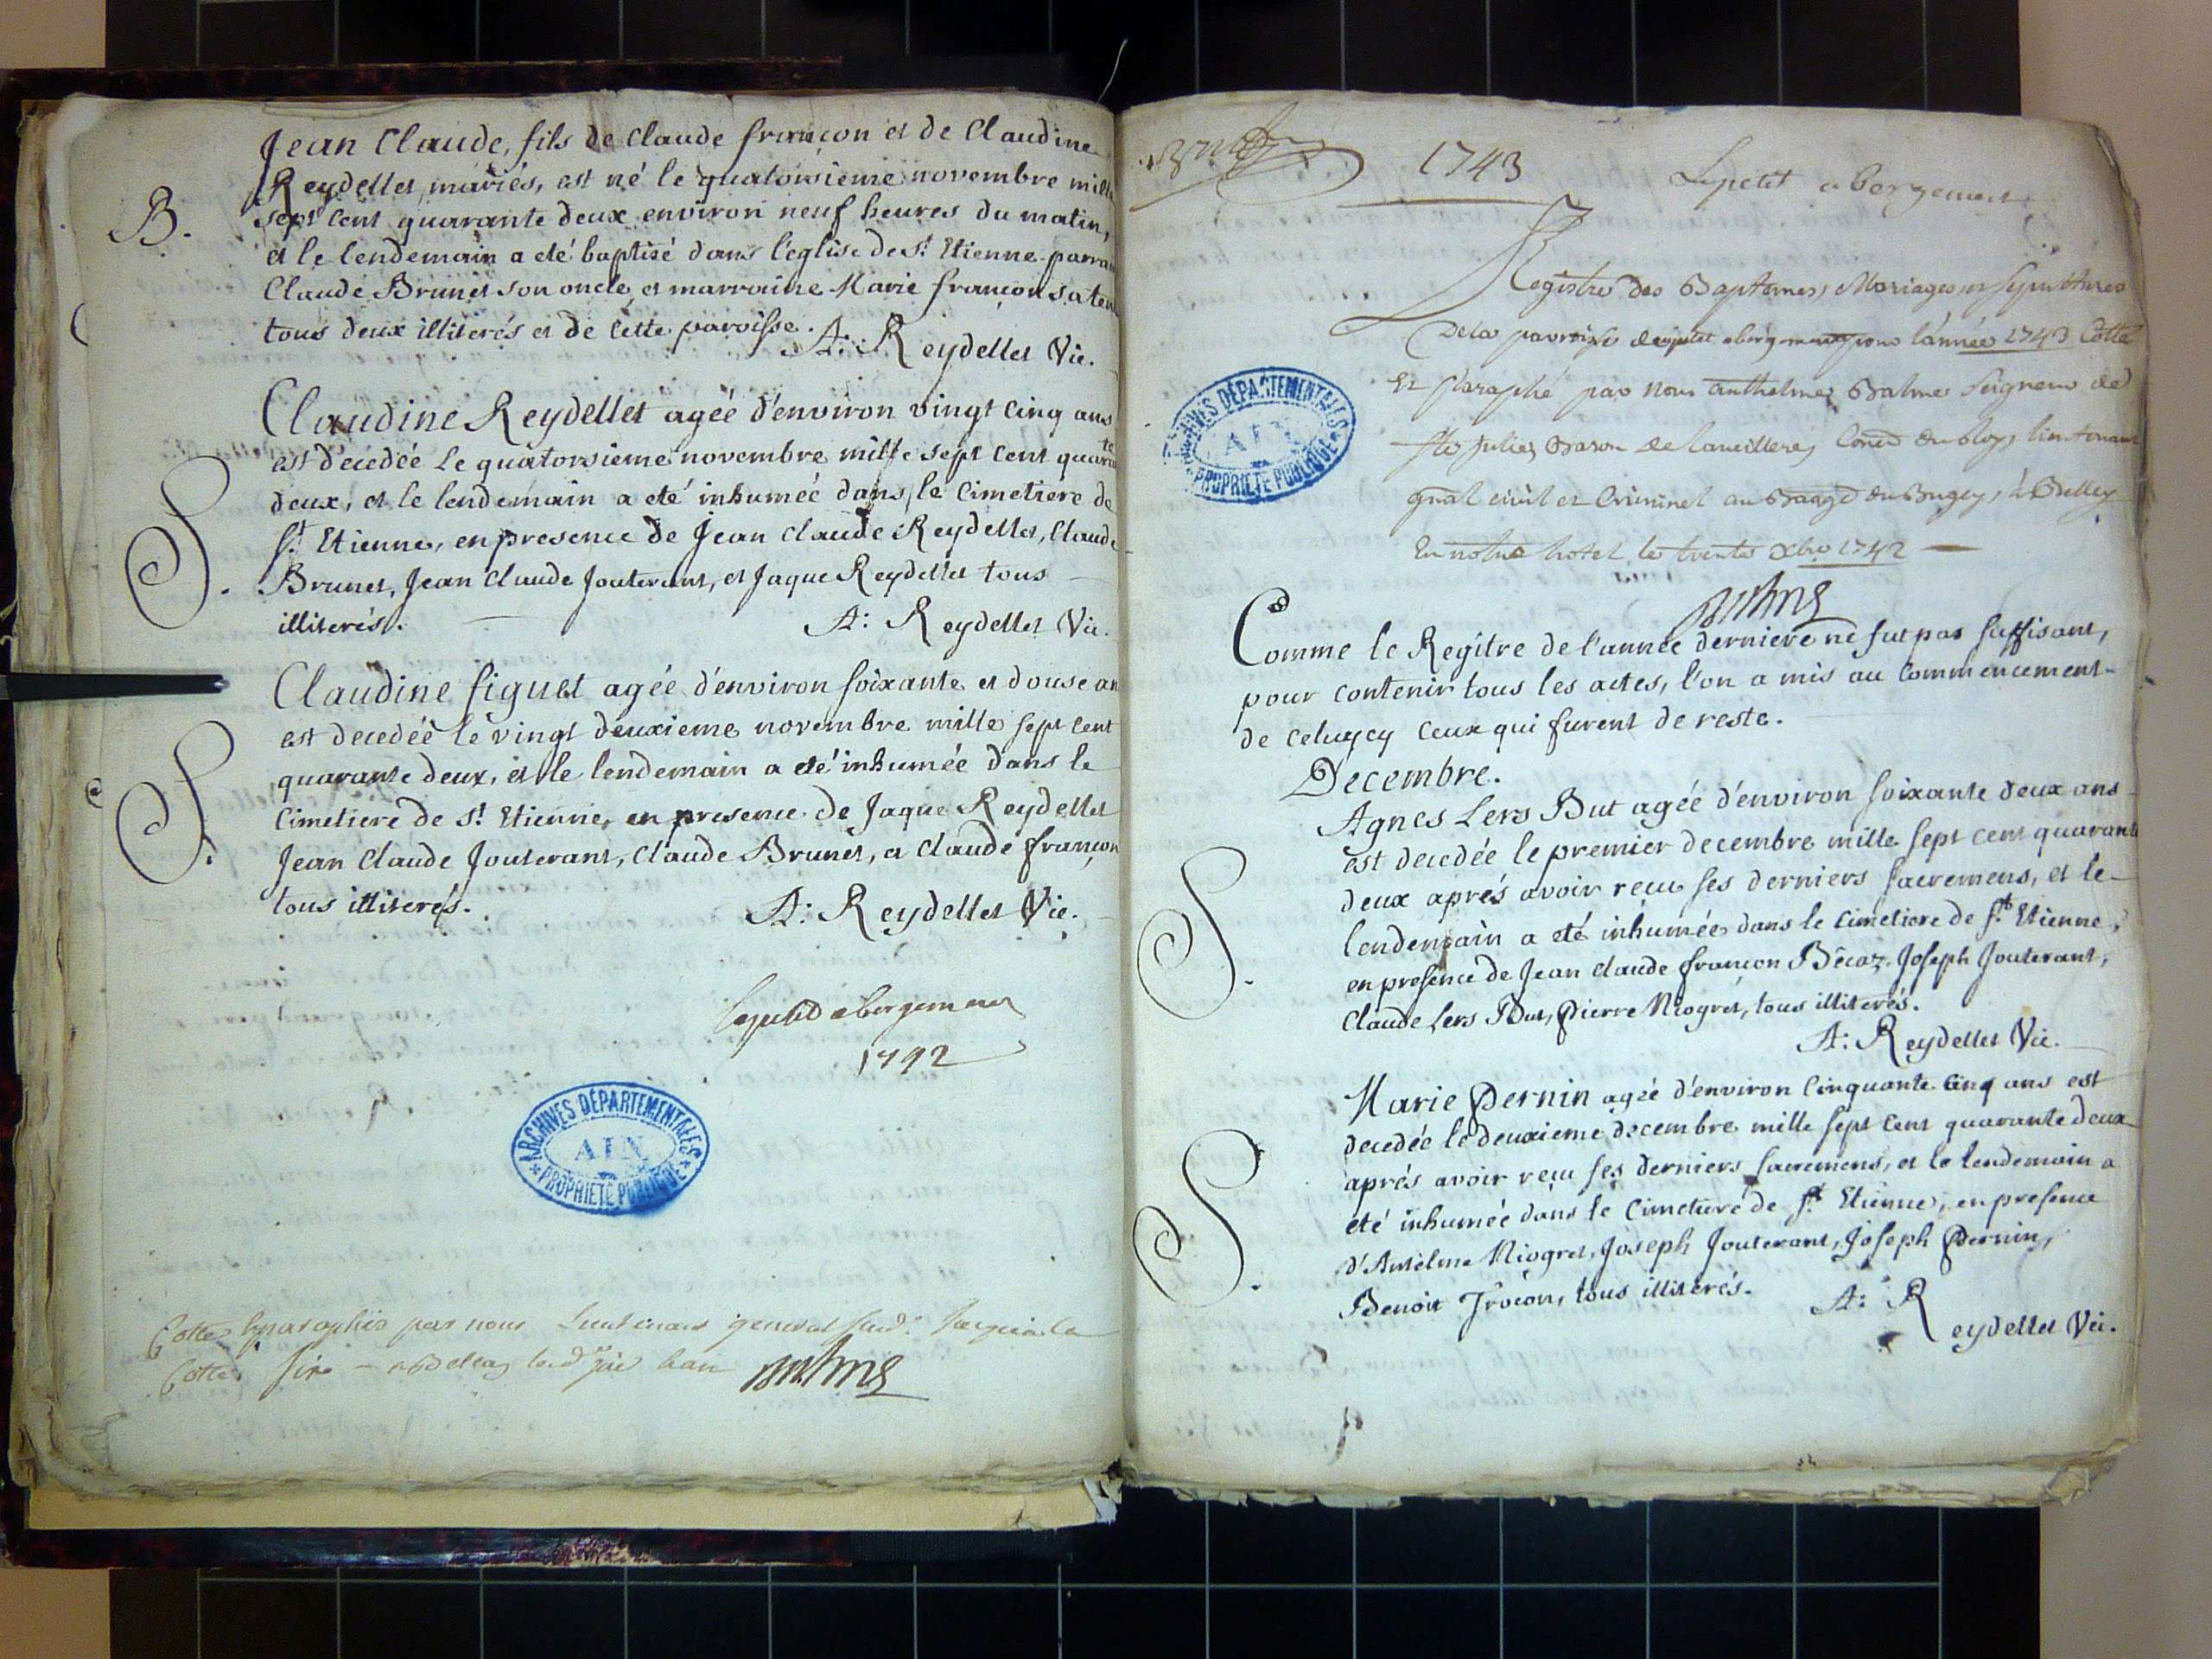 Jean Claude, fils de Claude françon et de Claudine
Reydellet mariés, est né le quatorsieme novembre mill
B.
sept cent quarante deux environ neuf heures du matin,
et le lendemain a eté baptisé dans l'église de St. Etienne parra
Claude Brunet son oncle, et marraine Marie françon sa
tous deux illiterés et de cette paroisse.
A: Reydellet Vic.
Claudine Reydellet agée d'environ vingt cinq ans
est decedée le quatorsieme novembre mille sept cent quara
deux, et le lendemain a eté inhumée dans le cimetiere de
St. Etienne, en presence de Jean Claude Reydellet, Claude
S.
Brunet, Jean Claude Jouterant, et Jaque Reydellet tous
illiterés.
A: Reydellet Vic.
Claudine figuet agée d'environ soixante et douse an
est decedée le vingt deuxieme novembre mille sept cent
quarante deux, et le lendemain a eté inhumée dans le
S.
cimetiere de St. Etienne, en presence de Jaque Reydellet
Jean Claude Jouterant, Claude Brunet, et Claude françon
tous illiterés.
A: Reydellet Vic.
Le petit abergement
1742
ARCHIVES DÉPARTEMENTALES
AIN
PROPRIÉTÉ PUBLIQUE
Cotté & paraphé par nous Lieutenant general
Cotte
Balme
1743
Le petit abergement
Registre des Baptemes, Mariages et sepultures
De la parroisse du petit abergement pour l'année 1743 Cotté
Et Paraphé par Nous anthelme Balme Seigneur de
Ste Julie, Baron de
gnal civil et Criminel au Baage du Bugey, à Belley
En notre hotel le trente Xbre 1742
ARCHIVES DÉPARTEMENTALES
AIN
PROPRIÉTÉ PUBLIQUE
Balme
Comme le Regitre de l'année derniere ne fut pas suffisant,
pour contenir tous les actes, l'on a mis au commencement
de celuycy ceux qui furent de reste.
Decembre.
Agnes Lers But agée d'environ soixante deux ans
est decedée le premier decembre mille sept cent quarante
deux aprés avoir reçu ses derniers sacremens, et le
S.
lendemain a eté inhumée dans le cimetiere de St. Etienne,
en presence de Jean Claude françon Bécaz, Joseph Jouterant,
Claude Lers But, Pierre Niogret, tous illiterés.
A: Reydellet Vic.
Marie Pernin agée d'environ cinquante cinq ans est
decedée le deuxieme decembre mille sept cent quarante deux
aprés avoir reçu ses derniers sacremens, et le lendemain a
S.
eté inhumée dans le cimetiere de St. Etienne, en presence
d'Antelme Niogret, Joseph Jouterant, Joseph Pernin,
Benoit Trocon, tous illiterés.
A: Reydellet Vic.